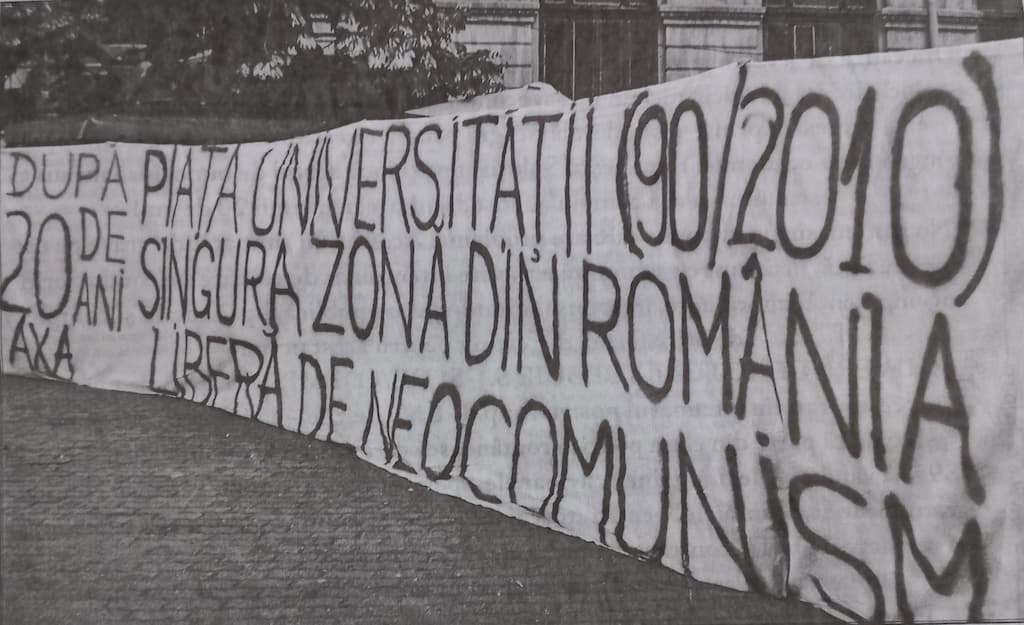 DUPĂ
20 DE
ANI
AXA
PIAȚA UNIVERSITĂȚII (90/2010)
SINGURA ZONĂ DIN ROMÂNIA
LIBERĂ DE NEOCOMUNISM